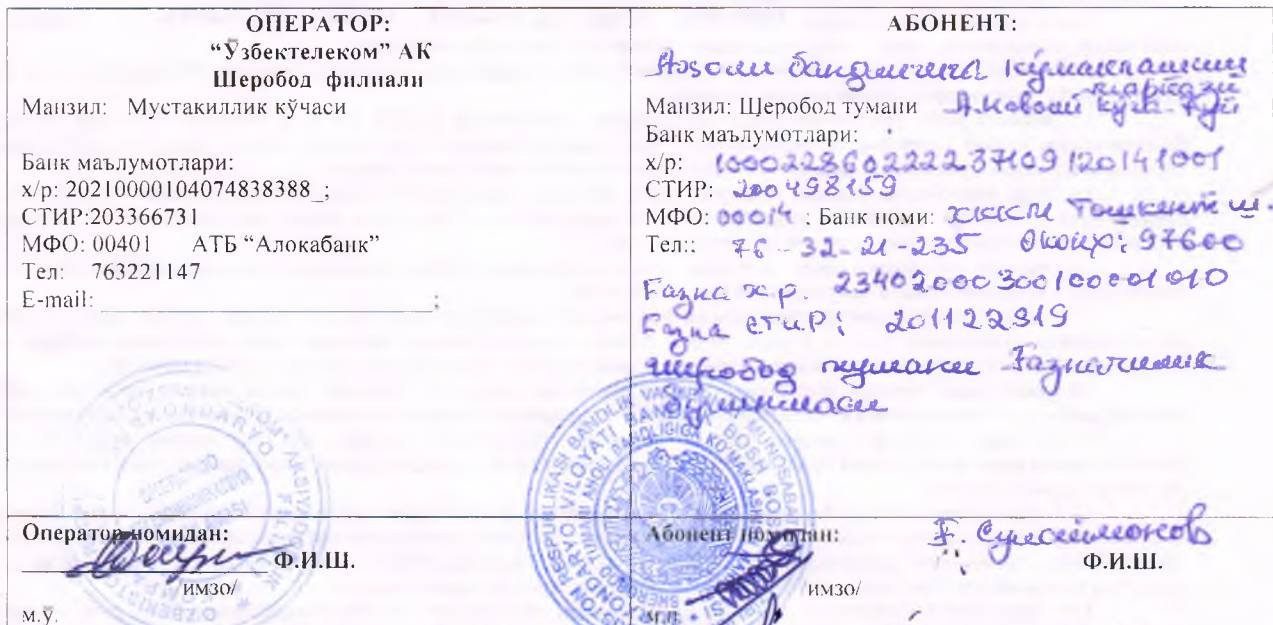 ОПЕРАТОР:
“Ўзбектелеком” АК
Шеробод филиали
Манзил: Мустакиллик кўчаси
Банк маълумотлари:
х/р: 20210000104074838388_;
СТИР:203366731
МФО: 00401 АТБ “Алокабанк”
Тел: 763221147
E-mail: ;
АБОНЕНТ:
Аҳоли бандлигига кўмаклашиш
маркази
Манзил: Шеробод тумани А.Навоий кўча
Банк маълумотлари:
х/р: 100022860222237109120141001
СТИР: 200498159
МФО: 00014 : Банк номи: ХККМ Тошкент ш.
Тел:: 76-32-21-235 97600
Ғазна х.р. 23402000300100001010
Ғазна СТИР: 201122919
Шеробод тумани Ғазначилик
бўлинмаси
Оператор номидан:
Ф.И.Ш.
/имзо/
м.ў.
Абонент номидан:
Ф. Сулаймонов
Ф.И.Ш.
/имзо/